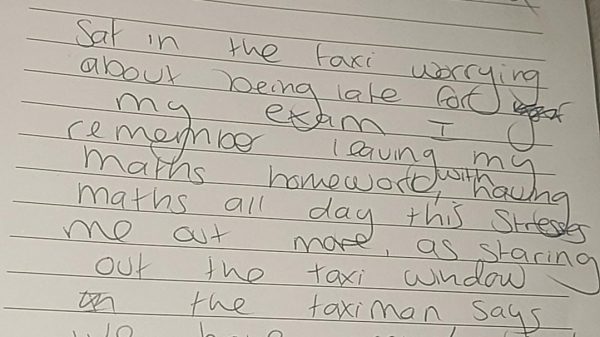 Sat in the taxi worrying
about being late for
my exam I
remember leaving my
maths homework, with having
maths all day this stresses
me out more, as staring
out the taxi window
the taximan says